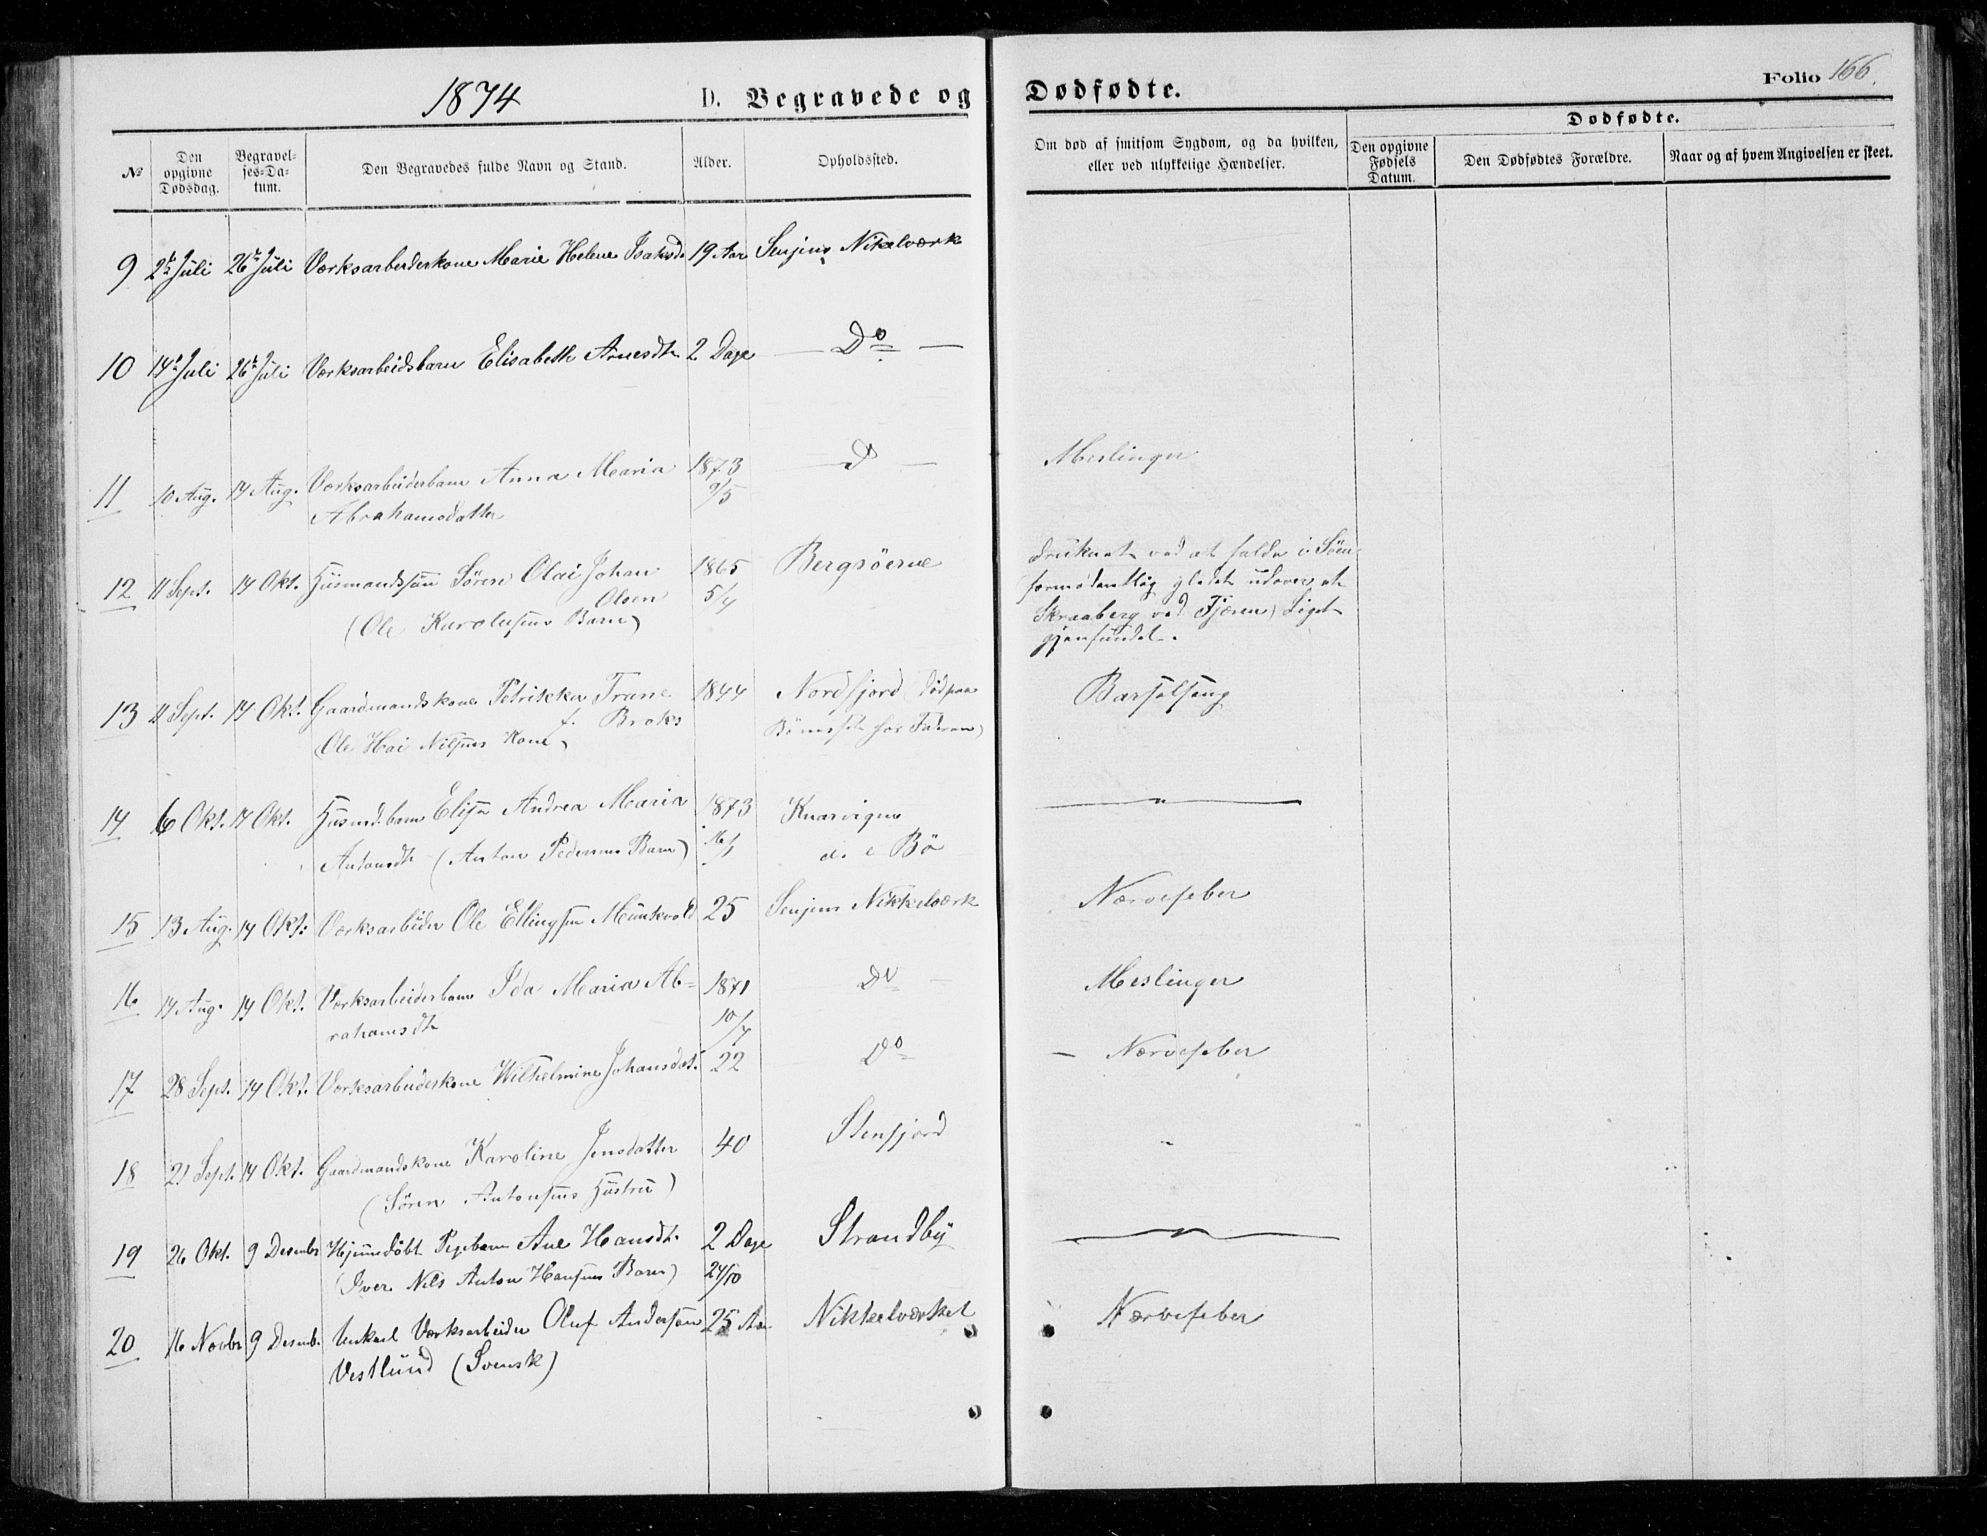 1874
D. Begravede og Dødfødte.
Folio 166.
№
Den opgivne Dødsdag.
Begravelses-Datum.
Den Begravedes fulde Navn og Stand.
Alder.
Opholdssted.
Om død af smitsom Sygdom, og da hvilken, eller ved ulykkelige Hændelser.
Dødfødte.
Den opgivne Fødsels Datum.
Den Dødfødtes Forældre.
Naar og af hvem Angivelsen er skeet.
9 2den Juli 26de Juli Værksarbeiderkone Marie Helene Isaksd. 19 Aar Senjens Nikelværk
10 14de Juli 26de Juli Værksarbeidsbarn Elisabeth Arnesdtr 2 Dage — Do —
11 10 Aug. 14 Aug. Værksarbeiderbarn Anna Maria 1873 — Do — Meslinger
Abrahamsdatter 9/5
12 11 Sept. 14 Okt. Husmandssøn Sören Olai Johan 1865 Bergsöerne druknet ved at falde i Söen
Olsen 5/4 formodentlig gledet udover et
(Ole Karolusens Barn) Skraaberg ved Fjæren) Liget
gjenfundet.
13 11 Sept. 14 Okt. Gaardmandskone Petrikke Trane 1844 Nordfjord (død paa Barselseng
f. Broks for Faderen)
(Ole Hai Nilsens Kone)
14 6 Okt. 14 Okt. Husmd.barn Elise Andrea Maria 1873 Knarvigen — " —
Antonsdtr (Anton Pedersens Barn) 16/1 Bö
15 13 Aug. 14 Okt. Værksarbeider Ole Ellingsen Munkvold 25 Senjens Nikkelværk Nærvefeber
16 14 Aug. 14 Okt. Værksarbeiderbarn Ida Maria Ab- 1871 Do — Meslinger
rahamsdtr 10/7
17 28 Sept. 14 Okt. Værksarbeiderkone Wilhelmine Johansdat. 22 Do — Nærvefeber
18 21 Sept. 14 Okt. Gaardmandskone Karoline Jensdatter 40 Stenfjord "
(Sören Antonsens Hustru)
19 26 Okt. 9 Desember Hjemmedöbt Pigebarn Ane Hansdtr. 2 Dage Strandby — " —
(Iver Nils Anton Hansens Barn) 24/10
20 16 Novbr 9 Desemb. Unkarl Værksarbeider Oluf Andersøn 25 Aar Nikkelværket Nærvefeber
Vestlund (Svensk)